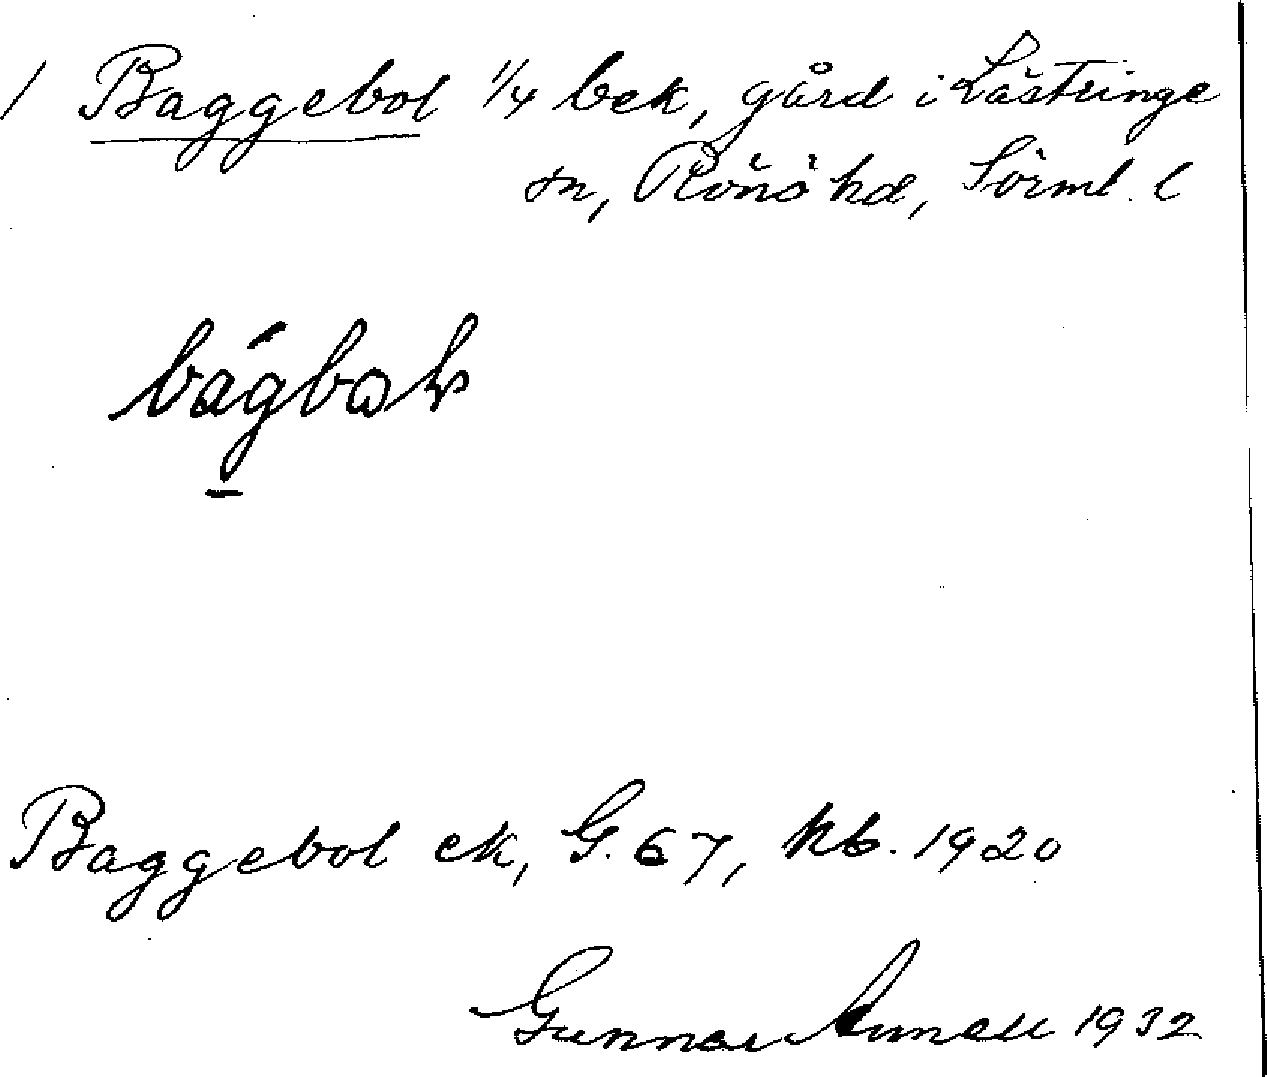 1 Baggebol 1/4 bek, gård i Lästringe
sn, Rönö hd, Sörml. l
Baggebol ek, G. 67, kb. 1920
Gunnar 1932